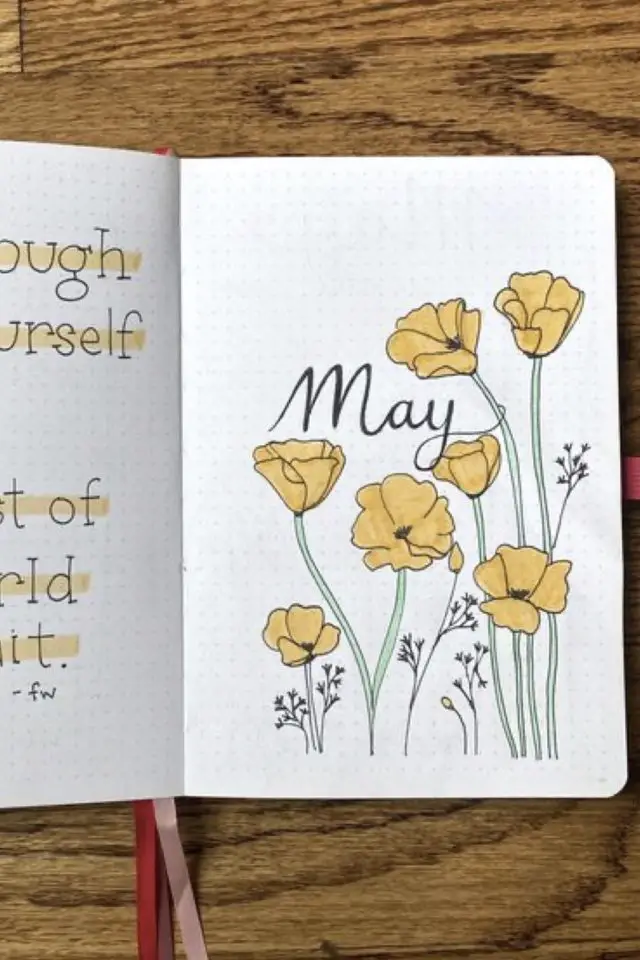 ough
urself
st of
rld
it.
- fw
May